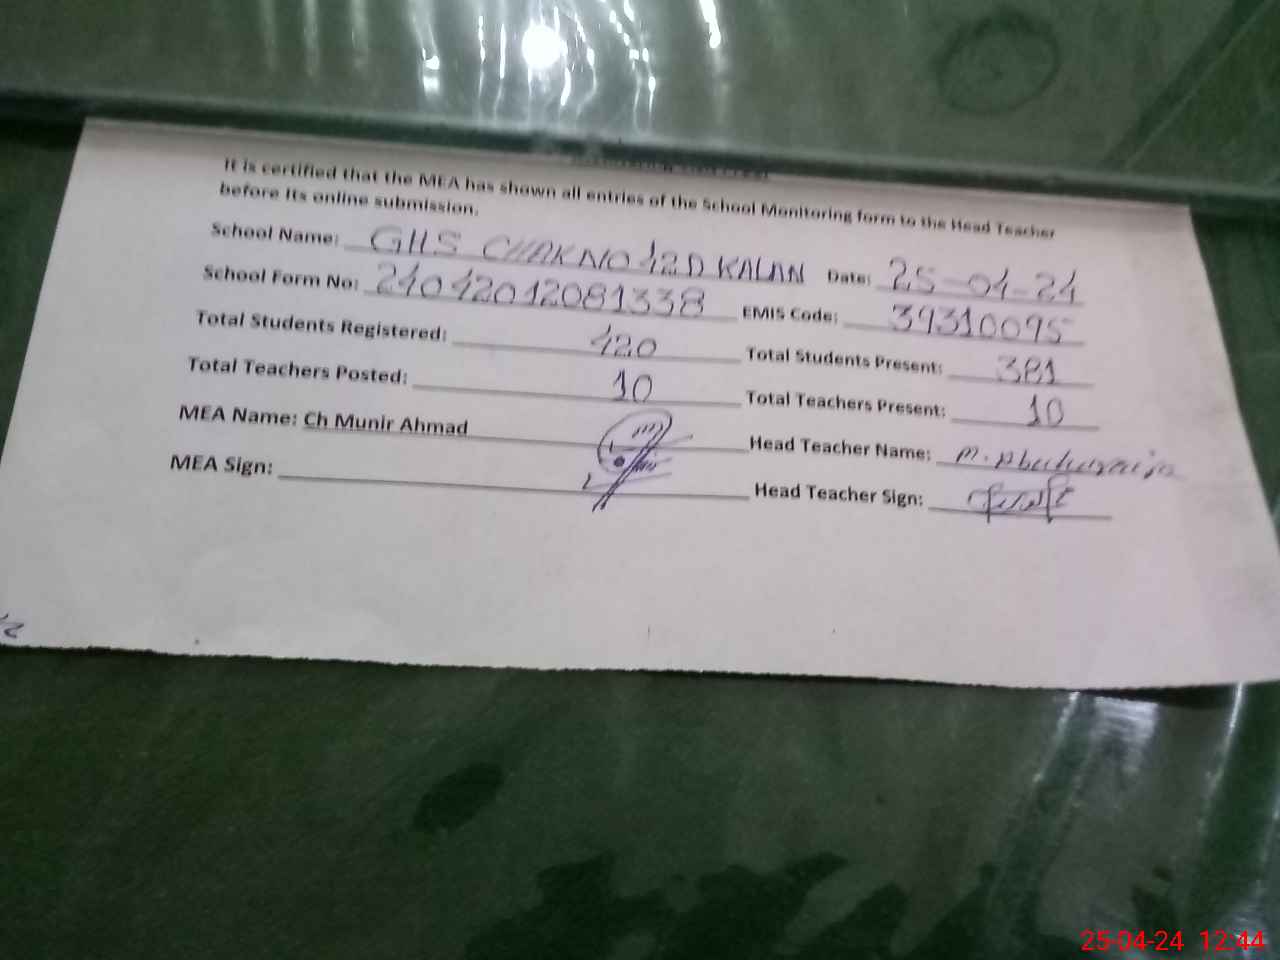 It is certified that the MEA has shown all entries of the School Monitoring form to the Head Teacher
before its online submission.
School Name: GHS CHAK NO 42D KALAN Date: 25-04-24
School Form No: 24042012081338 EMIS Code: 39310095
Total Students Registered: 420 Total Students Present: 381
Total Teachers Posted: 10 Total Teachers Present: 10
MEA Name: Ch Munir Ahmad Head Teacher Name: M.
MEA Sign: Head Teacher Sign:
25-04-24 12:44